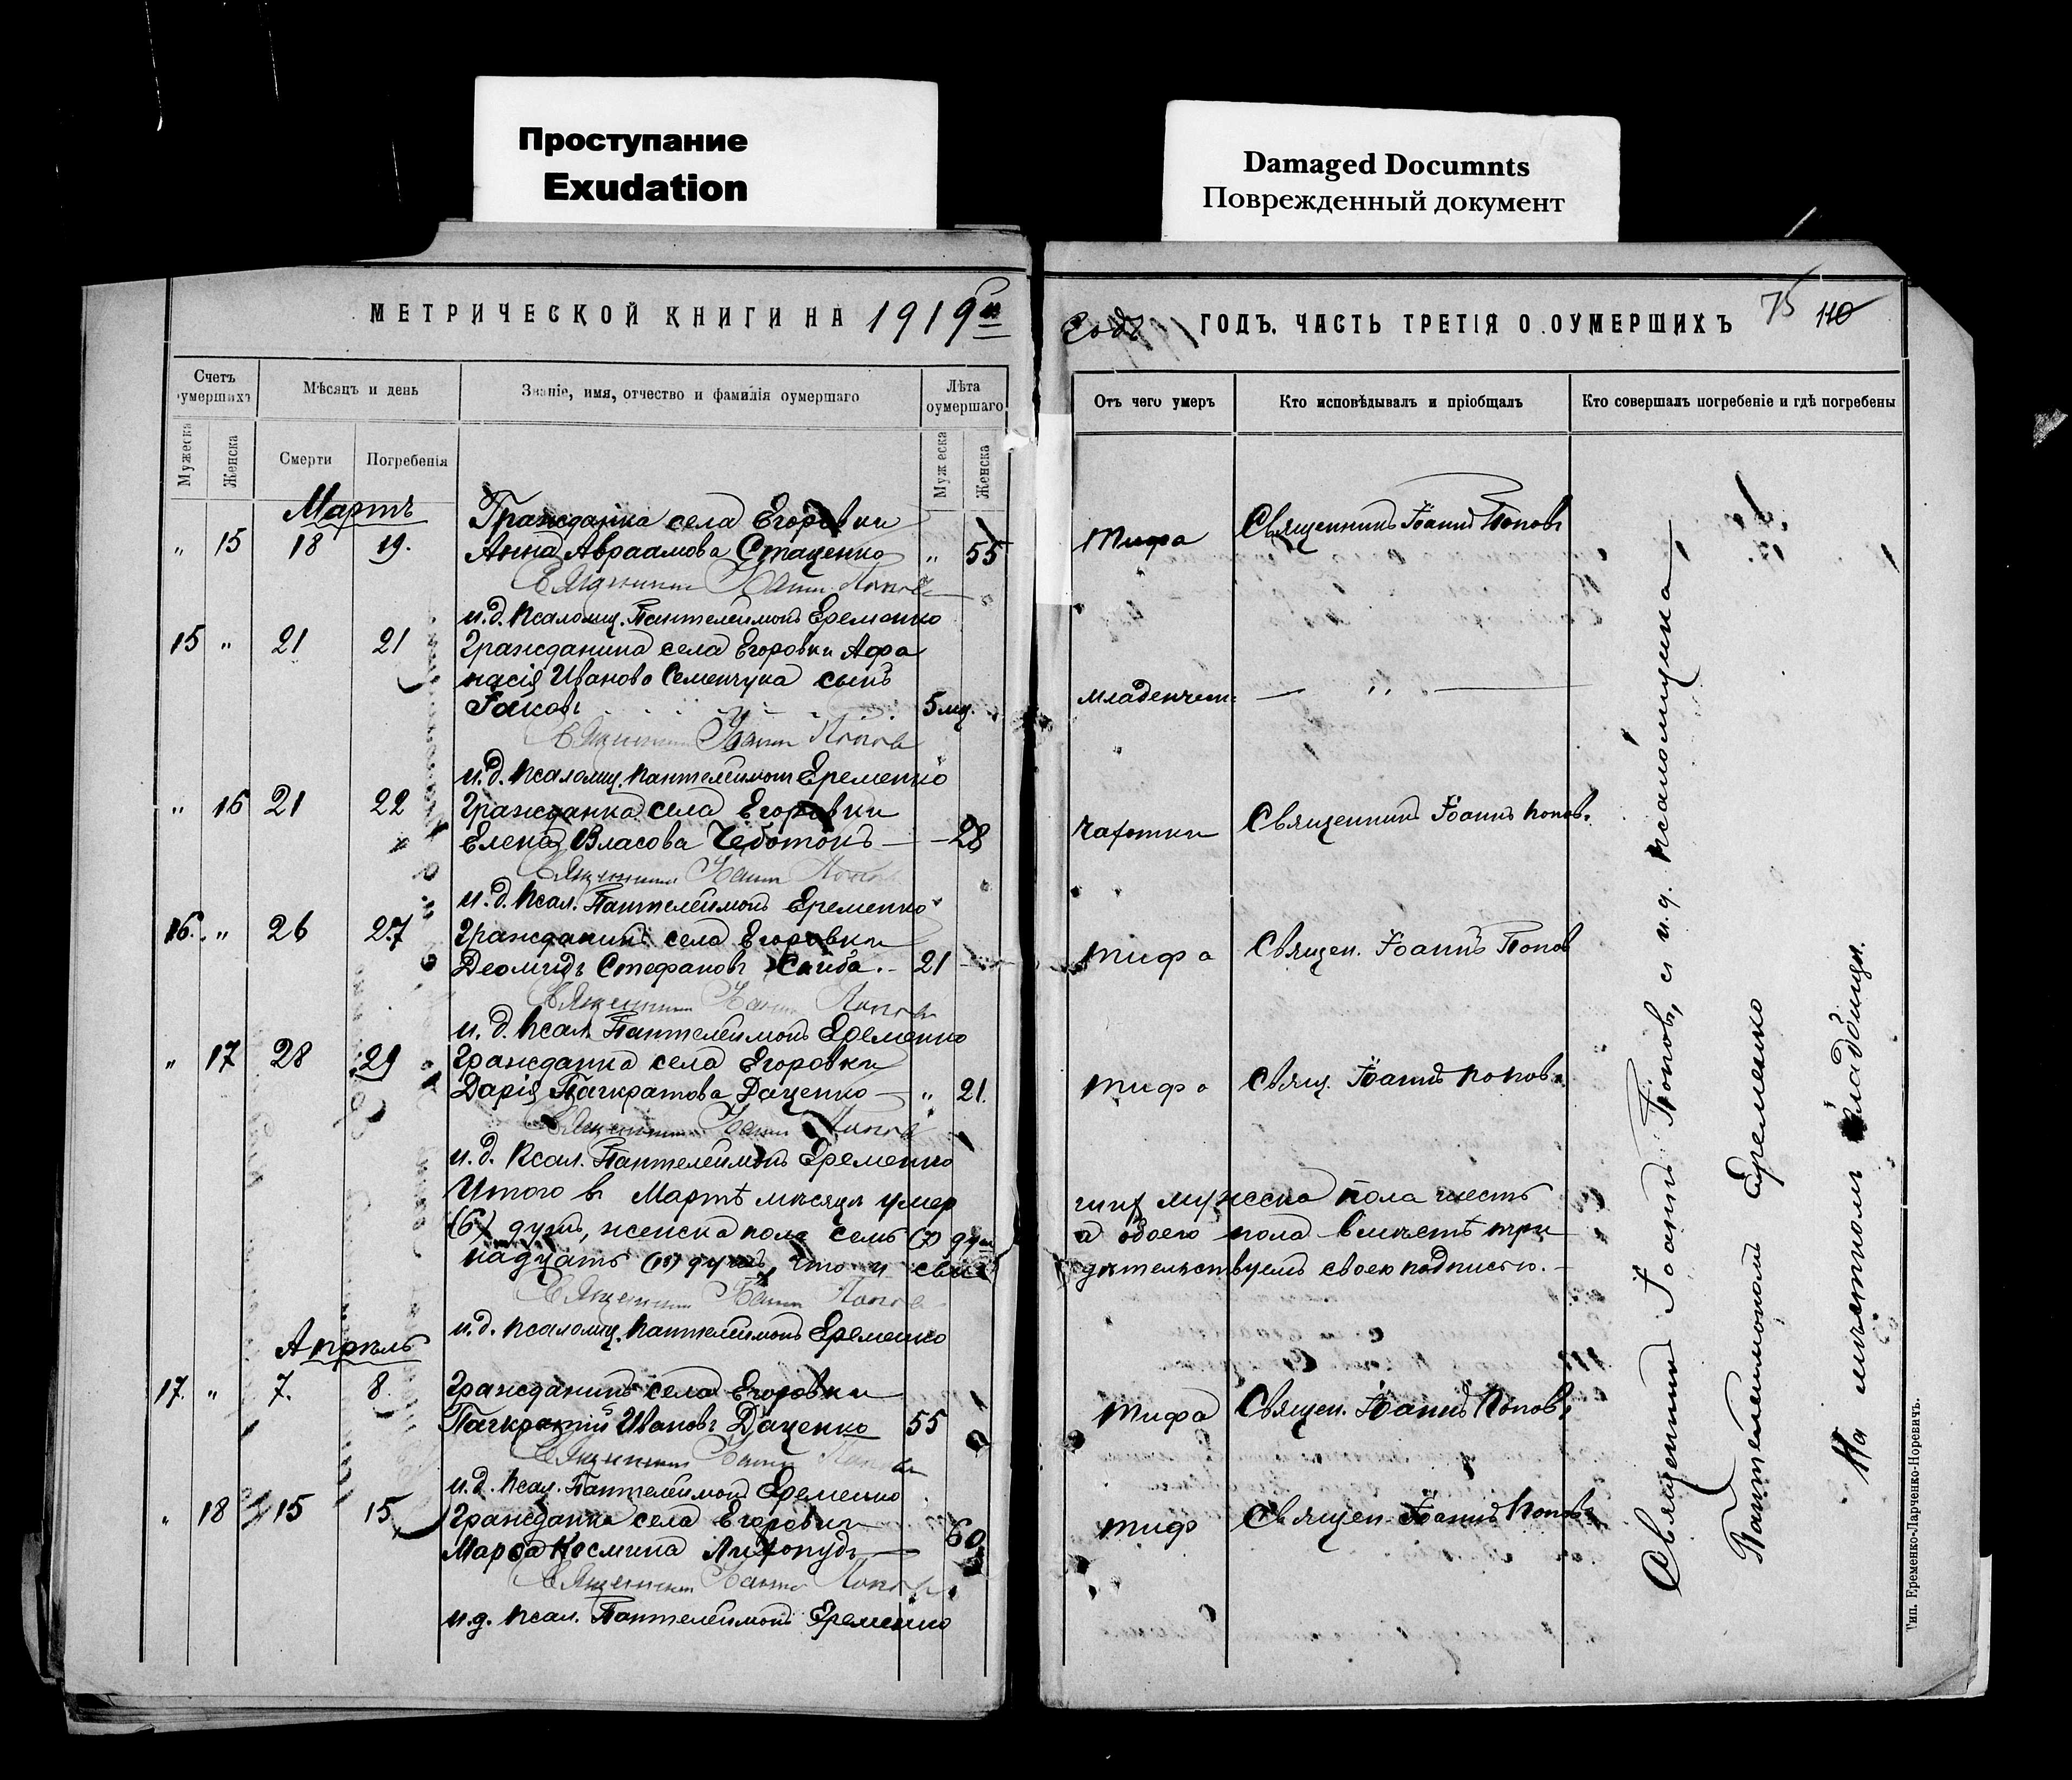 Проступание
Exudation
Damaged Documnts
Поврежденный документ
МЕТРИЧЕСКОЙ КНИГИ НА 1919й
Счетъ
умершихъ
Мѣсяцъ и день
Званіе, имя, отчество и фамилія оумершаго
Лѣта
оумершаго
Мужеска
Женска
Смерти
Погребенія
Муж еска
Женска
Мартъ
Гражданка села Егоровки
" 15 18 19. Анна Авраамова Стаценко " 55
Священникъ Іоаннъ Поповъ
и.д. псаломщ. Пантелеимонъ Еременко
15 " 21 21 Гражданина села Егоровки Афа
насія Иванова Семенчука сынъ
Іаковъ 5 мц.
Священникъ Іоаннъ Поповъ
и.д. псаломщ. Пантелеимонъ Еременко
" 16 21 22 Гражданка села Егоровки
Елена Власова Чеботокъ — 28
Священникъ Іоаннъ Поповъ
и.д. псал. Пантелеимонъ Еременко
16. " 26 27 Гражданинъ села Егоровки
Деомидъ Стефановъ 21
Священникъ Іоаннъ Поповъ
и.д. псал. Пантелеимонъ Еременко
" 17 28 29 Гражданка села Егоровки
Дарія Панкратова Даценко — " 21.
Священникъ Іоаннъ Поповъ
и.д. псал. Пантелеимонъ Еременко
Итого въ Мартѣ мѣсяцѣ умер
(6) душъ, женска пола семь (7) душ
надцать (13) душъ, что и свид
Священникъ Іоаннъ Поповъ
и.д. псаломщ. Пантелеимонъ Еременко
Апрѣль
17. " 7. 8. Гражданинъ села Егоровки
Панкратій Ивановъ Даценко 55
Священникъ Іоаннъ Поповъ
и.д. псал. Пантелеимонъ Еременко
" 18 15 15 Гражданка села Егоровки
Марфа Космина 60
Священникъ Іоаннъ Поповъ
и.д. псал. Пантелеимонъ Еременко
годъ ГОДЪ. ЧАСТЬ ТРЕТІЯ О ОУМЕРШИХЪ 75 110
Отъ чего умеръ
Кто исповѣдывалъ и пріобщалъ
Кто совершалъ погребеніе и гдѣ погребены
Тифа Священникъ Іоаннъ Поповъ
младенчест. — " —
чахотки Священникъ Іоаннъ Поповъ.
тифа Священ. Іоаннъ Попов
тифа Свящ. Іоаннъ Поповъ.
мужеска пола шесть
а обоего пола вмѣстѣ три
дѣтельствуемъ своею подписью.
тифа Священ. Іоаннъ Поповъ
тиф Священ. Іоаннъ Поповъ
Священникъ Іоаннъ Поповъ, съ и.д. псаломщика
Пантелеимономъ Еременко
На мѣстномъ кладбищѣ.
Тип. Еременко-Ларченко-Норевичъ.